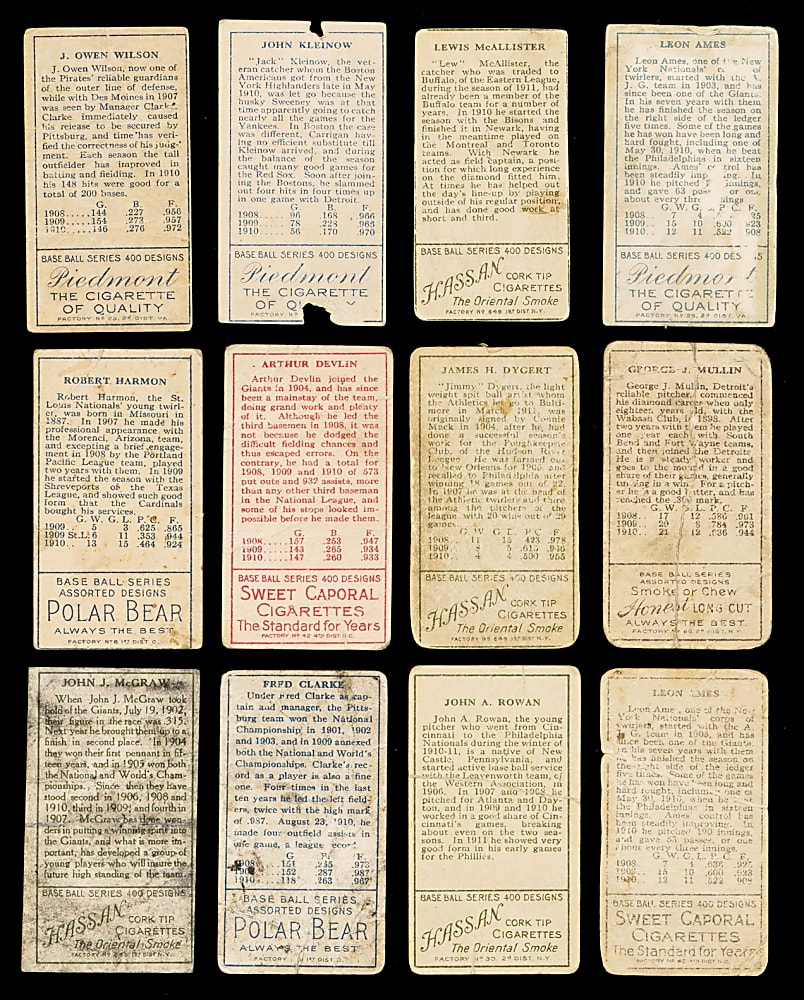 J. OWEN WILSON
J. Owen Wilson, now one of
the Pirates' reliable guardians
of the outer line of defense,
while with Des Moines in 1907
was seen by Manager Clarke.
Clarke immediately caused
his release to be secured by
Pittsburg, and time has veri-
fied the correctness of his judg-
ment. Each season the tall
outfielder has improved in
batting and fielding. In 1910
his 148 hits were good for a
total of 200 bases.
G. B. F.
1908.....144 .227 .956
1909.....154 .273 .957
1910.....146 .276 .972
BASE BALL SERIES 400 DESIGNS
Piedmont
THE CIGARETTE
OF QUALITY
FACTORY No 25, 2d DIST. VA.
JOHN KLEINOW
"Jack" Kleinow, the vet-
eran catcher whom the Boston
Americans got from the New
York Highlanders late in May
1910, was let go because the
husky Sweeney was at that
time apparently going to catch
nearly all the games for the
Yankees. In Boston the case
was different, Carrigan hav-
ing no efficient substitute till
Kleinow arrived, and during
the balance of the season
caught many good games for
the Red Sox. Soon after join-
ing the Bostons, he slammed
out four hits in four times up
in one game with Detroit.
G. B. F.
1908..... 96 .168 .966
1909..... 78 .228 .963
1910..... 56 .170 .970
BASE BALL SERIES 400 DESIGNS
Piedmont
THE CIGARETTE
OF
FACTORY No
LEWIS McALLISTER
"Lew" McAllister, the
catcher who was traded to
Buffalo, of the Eastern League,
during the season of 1911, had
already been a member of the
Buffalo team for a number of
years. In 1910 he started the
season with the Bisons and
finished it in Newark, having
in the meantime played on
the Montreal and Toronto
teams. With Newark he
acted as field captain, a posi-
tion for which long experience
on the diamond fitted him.
At times he has helped out
the day's line-up by playing
outside of his regular position,
and has done good work at
short and third.
BASE BALL SERIES 400 DESIGNS
HASSAN
CORK TIP
CIGARETTES
The Oriental Smoke
FACTORY No 649 1st DIST. N.Y.
LEON AMES
Leon Ames, one of the New
York Nationals' of
twirlers, started with the
J. G. team in 1903, and has
since been one of the Giants.
In his seven years with them
he has finished the season on
the right side of the ledger
five times. Some of the games
he has won have been long and
hard fought, including one of
May 30, 1910, when he beat
the Philadelphias in sixteen
innings. Ames' control has
been steadily In
1910 he pitched innings,
and gave 63 or one
about every innings
G. W. G. L. P. C. F.
1908.. 7 4
1909.. 15 10 .600 .923
1910.. 12 11 .522 .908
BASE BALL SERIES 400
Piedmont
THE CIGARETTE
OF QUALITY
FACTORY No 25, 2d DIST. VA.
ROBERT HARMON
Robert Harmon, the St.
Louis Nationals' young twirl-
er, was born in Missouri in
1887. In 1907 he made his
professional appearance with
the Morenci, Arizona, team,
and excepting a brief engage-
ment in 1908 with the Portland
Pacific League team, played
two years with them. In 1909
he started the season with the
Shreveports of the Texas
League, and showed such good
form that the Cardinals
bought his services.
G. W. G. L. P. C. F.
1909.. 5 3 .625 .865
1909 St.L. 6 11 .353 .944
1910.. 13 15 .464 .924
BASE BALL SERIES
ASSORTED DESIGNS
POLAR BEAR
ALWAYS THE BEST
FACTORY No 6 1st DIST. O.
ARTHUR DEVLIN
Arthur Devlin joined the
Giants in 1904, and has since
been a mainstay of the team,
doing grand work and plenty
of it. Although he led the
third basemen in 1908, it was
not because he dodged the
difficult fielding chances and
thus escaped errors. On the
contrary, he had a total for
1908, 1909 and 1910 of 573
put outs and 932 assists, more
than any other third baseman
in the National League, and
some of his stops looked im-
possible before he made them.
G. B. F.
1908.....157 .253 .947
1909.....143 .265 .934
1910.....147 .260 .933
BASE BALL SERIES 400 DESIGNS
SWEET CAPORAL
CIGARETTES
The Standard for Years
FACTORY No 42 4th DIST. N.C.
JAMES H. DYGERT
"Jimmy" Dygert, the light
weight spit ball artist whom
the Athletics let go to Balti-
more in March 1911, was
originally signed by Connie
Mack in 1904, after he had
done a successful season's
work for the Poughkeepsie
Club, of the Hudson River
League. He was farmed out
to New Orleans for 1905 and
recalled to Philadelphia after
winning 18 games out of 22.
In 1907 he was at the head of
the Athletic twirlers and third
among the pitchers of the
league with 20 wins out of 29
games.
G. W. G. L. P. C. F.
1908.. 11 15 .423 .978
1909.. 8 5 .615 .946
1910.. 4 4 .500 .955
BASE BALL SERIES 400 DESIGNS
HASSAN
CORK TIP
CIGARETTES
The Oriental Smoke
FACTORY No 649 1st DIST. N.Y.
GEORGE J. MULLIN
George J. Mullin, Detroit's
reliable pitcher, commenced
his diamond career when only
eighteen years old, with the
Wabash Club, in 1898. After
two years with them he played
one year each with South
Bend and Fort Wayne teams,
and then joined the Detroits.
He is a steady worker and
goes to the mound in a good
share of their games, generally
turning in a win. For a pitch-
er he's a good hitter, and has
reached the .300 mark.
G. W. G. L. P. C. F.
1908.. 17 12 .586 .961
1909.. 29 8 .784 .973
1910.. 21 12 .636 .944
BASE BALL SERIES
ASSORTED DESIGNS
Smoke or Chew
Honest LONG CUT
ALWAYS THE BEST
JOHN J. McGRAW
When John J. McGraw took
hold of the Giants, July 19, 1902,
their figure in the race was .315.
Next year he brought them up to a
finish in second place. In 1904
they won their first pennant in fif-
teen years, and in 1905 won both
the National and World's Cham-
pionships. Since then they have
stood second in 1906, 1908 and
1910, third in 1909; and fourth in
1907. McGraw has done won-
ders in putting a winning spirit into
the Giants, and what is more im-
portant, has developed a group of
young players who will insure the
future high standing of the team.
BASE BALL SERIES 400 DESIGNS
HASSAN
CORK TIP
CIGARETTES
The Oriental Smoke
FACTORY No 649 1st DIST. N.Y.
FRED CLARKE
Under Fred Clarke as cap-
tain and manager, the Pitts-
burg team won the National
Championship in 1901, 1902
and 1903, and in 1909 annexed
both the National and World's
Championships. Clarke's rec-
ord as a player is also a fine
one. Four times in the last
ten years he led the left field-
ers, twice with the high mark
of .987. August 23, 1910, he
made four outfield assists in
one game, a league record.
G. B. F.
1908.....151 .265 .973
1909.....152 .287 .987
1910.....118 .263 .967
BASE BALL SERIES
ASSORTED DESIGNS
POLAR BEAR
ALWAYS THE BEST
FACTORY 1st DIST. O.
JOHN A. ROWAN
John A. Rowan, the young
pitcher who went from Cin-
cinnati to the Philadelphia
Nationals during the winter of
1910-11, is a native of New
Castle, Pennsylvania, and
started active base ball service
with the Leavenworth team, of
the Western Association, in
1906. In 1907 and 1908 he
pitched for Atlanta and Day-
ton, and in 1909 and 1910 he
worked in a good share of Cin-
cinnati's games, breaking
about even on the two sea-
sons. In 1911 he showed very
good form in his early games
for the Phillies.
BASE BALL SERIES 400 DESIGNS
HASSAN
CORK TIP
CIGARETTES
The Oriental Smoke
FACTORY No 30. 2d DIST. N.Y.
LEON AMES
Leon Ames, one of the New
York Nationals' corps of
twirlers, started with the
J. G. team in 1903, and has
since been one of the Giants.
In his seven years with them
he has finished the season on
the right side of the ledger
five times. Some of the games
he has won have been long and
hard fought, including one of
May 30, 1910, when he beat
the Philadelphias in sixteen
innings. Ames' control has
been steadily improving. In
1910 he pitched 190 innings,
and gave 63 passes, or one
about every three innings.
G. W. G. L. P. C. F.
1908.. 7 4 .636
1909.. 15 10 .600 .923
1910.. 12 11 .522 .908
BASE BALL SERIES 400 DESIGNS
SWEET CAPORAL
CIGARETTES
The Standard for Years